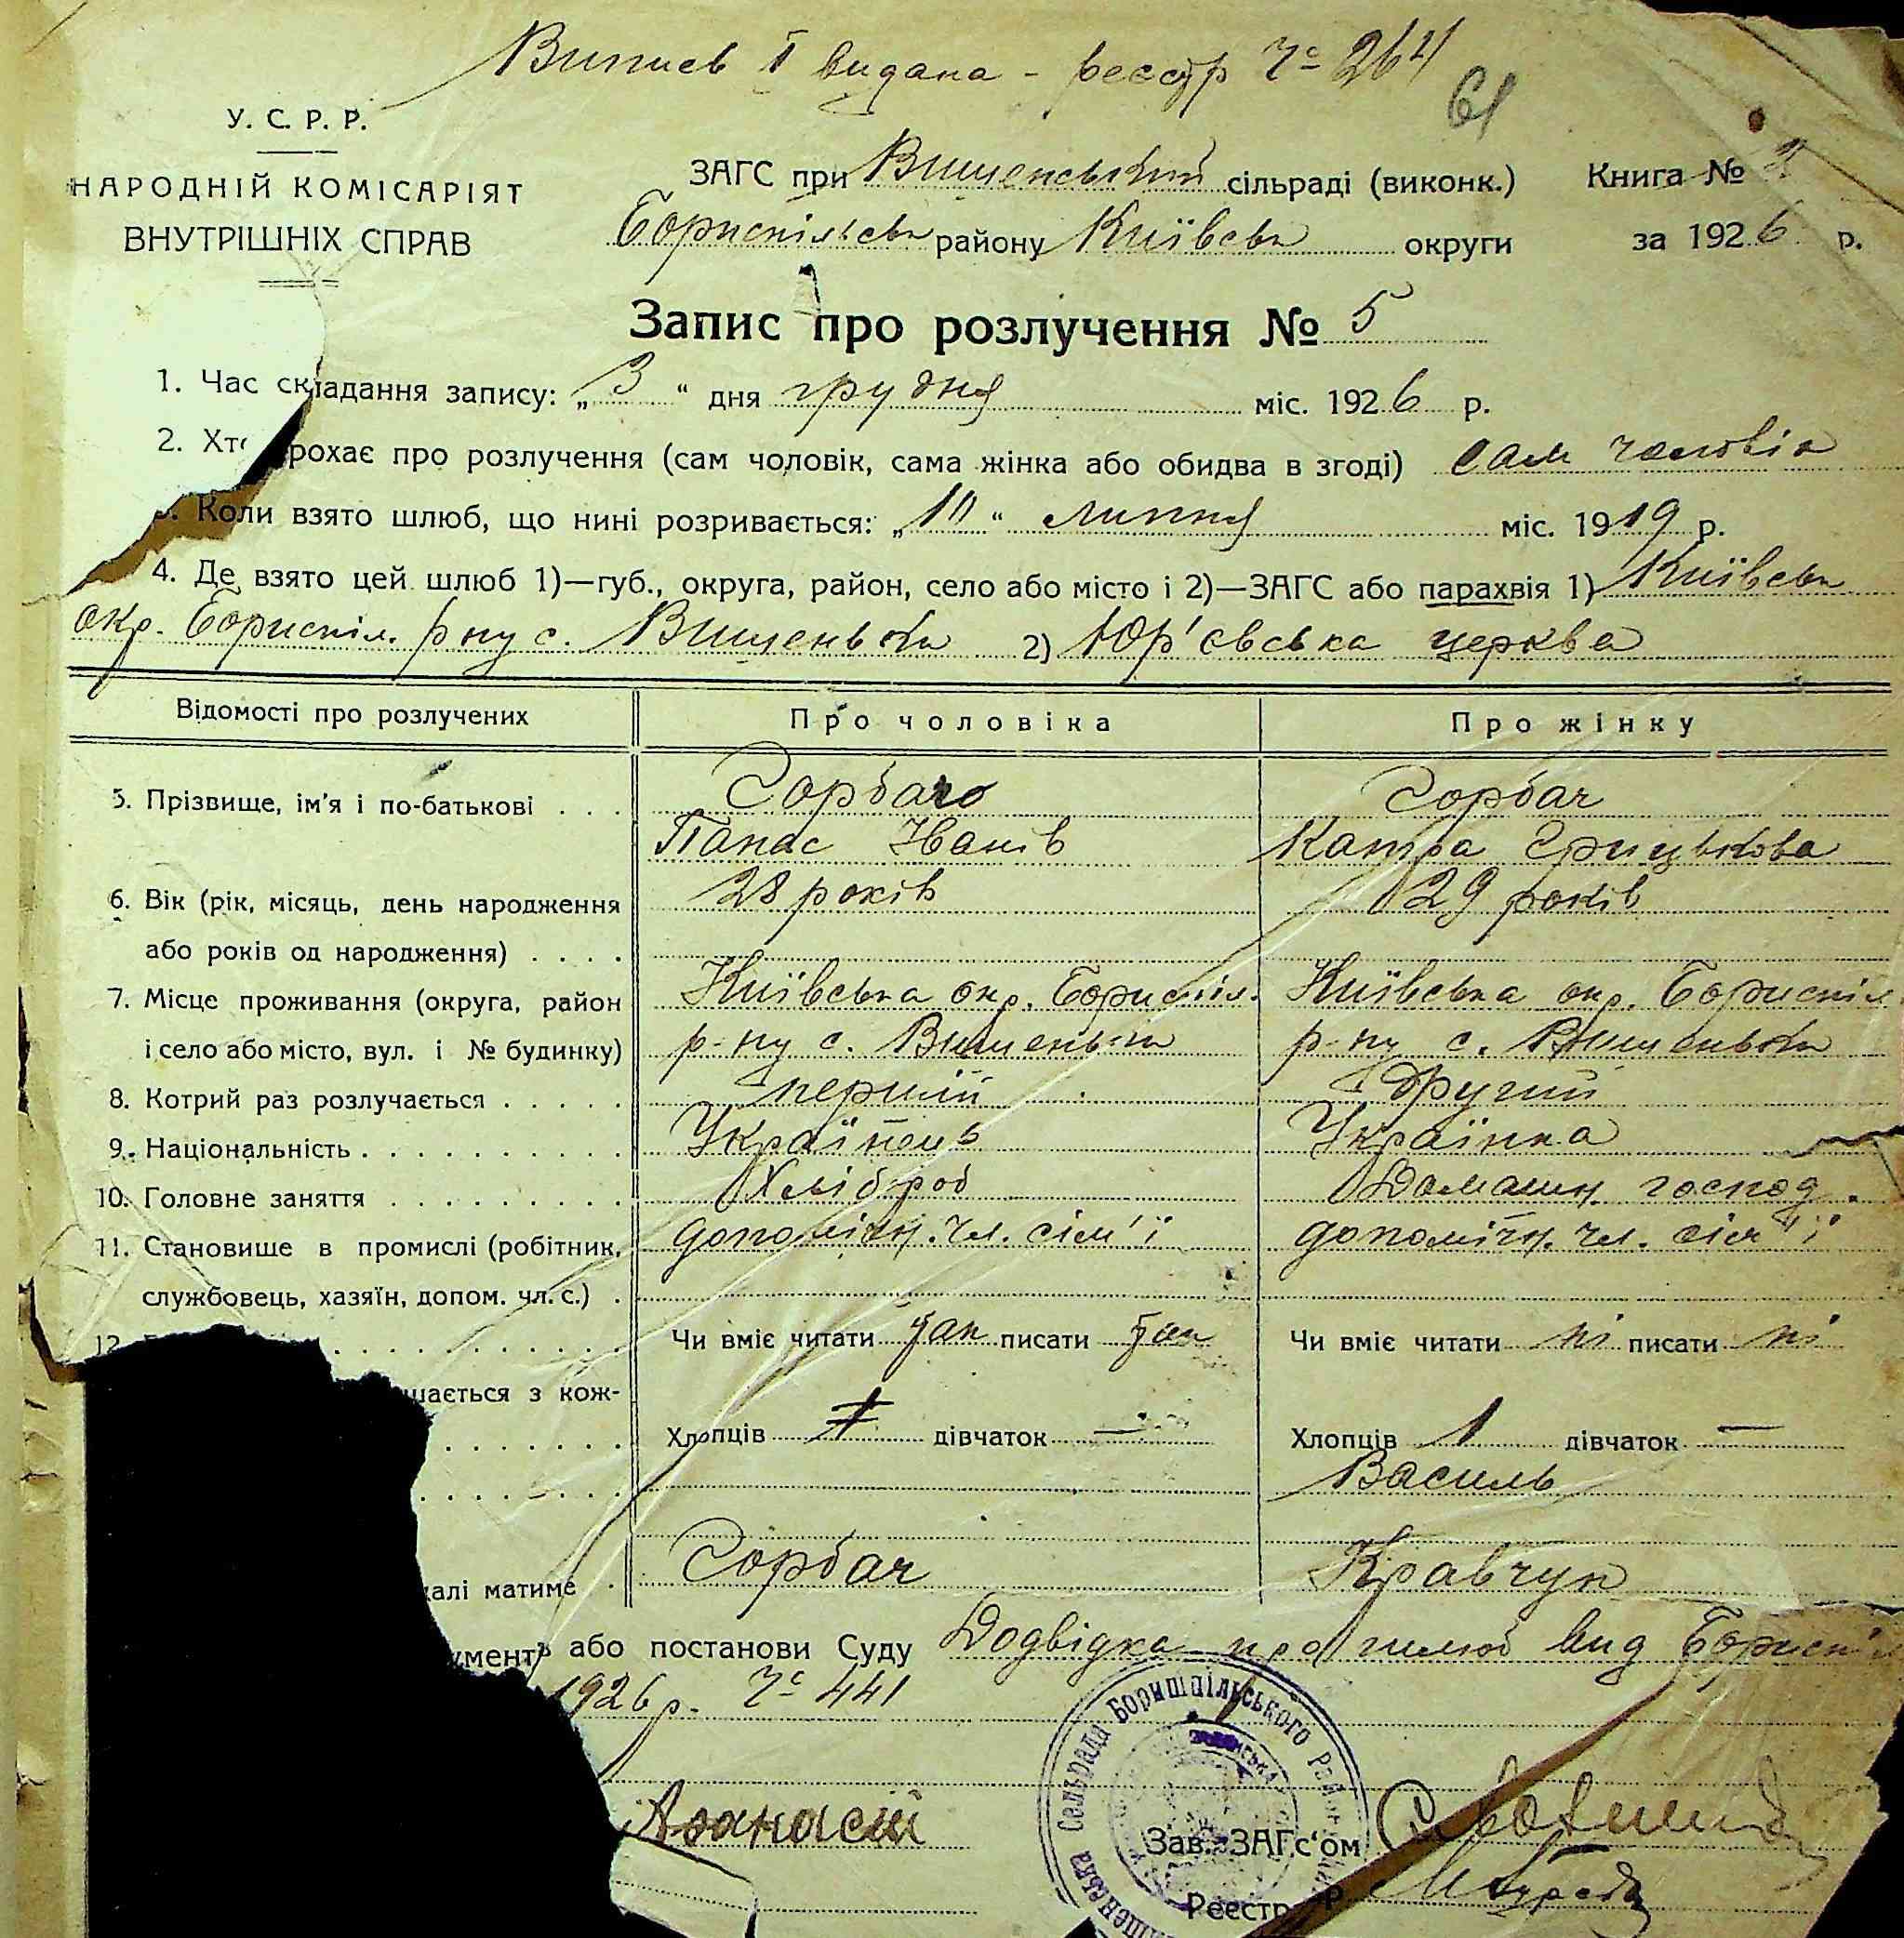 Випись І видана - реєстр № 264
61
У. С. Р. Р.
НАРОДНІЙ КОМІСАРІЯТ
ВНУТРІШНІХ СПРАВ
ЗАГС при Вишенський сільраді (виконк.) Книга №
Бориспільськ району Київськ округи за 1926 р.
Запис про розлучення № 5
1. Час складання запису: „3“ дня грудня міс. 1926 р.
2. Хто прохає про розлучення (сам чоловік, сама жінка або обидва в згоді) сам чоловік
3. Коли взято шлюб, що нині розривається: „10“ липня міс. 1919 р.
4. Де взято цей шлюб 1)—губ., округа, район, село або місто і 2)—ЗАГС або парахвія 1) Київськ
окр. Бориспіл. р ну с. Вишеньки 2) Юр'євська церква
Відомості про розлучених Про чоловіка Про жінку
5. Прізвище, ім'я і по-батькові . . . Горбач Горбач
Панас Іванів Катра Грицькова
6. Вік (рік, місяць, день народження 28 років 29 років
або років од народження) . . . .
7. Місце проживання (округа, район Київська окр. Бориспіл. Київська окр. Бориспіл
і село або місто, вул. і № будинку) р-ну с. Вишеньки р-ну с. Вишеньки
8. Котрий раз розлучається . . . . . перший другий
9. Національність . . . . . . . . . . . Українець Українка
10. Головне заняття . . . . . . . . . . Хлібороб Домашн. господ.
11. Становище в промислі (робітник, допоміжн. чл. сім'ї допоміжн. чл. сім'ї
службовець, хазяїн, допом. чл. с.) .
12. Чи вміє читати так писати так Чи вміє читати ні писати ні
шається з кож-
Хлопців дівчаток — Хлопців 1 дівчаток —
Василь
далі матиме . Горбач Кравчук
ументь або постанови Суду Додвідка про шлюб вид Бориспіл
1926 р. № 441
Афанасій Зав. ЗАГс'ом
Реєстр
шенська Сельрада Боришпільського Рай